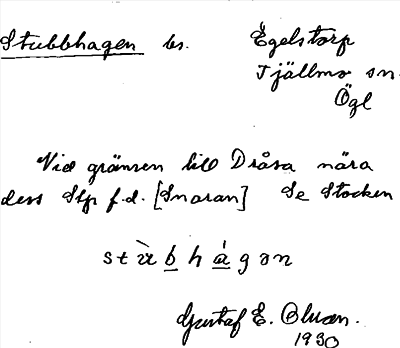 Stubbhagen bs. Egelstorp
Tjällmo sn.
Ögl
Vid gränsen till Dråsa nära
dess Stp f.d. [Snaran] Se Stocken
stùbhágən
Gustaf E. Bluan.
1930